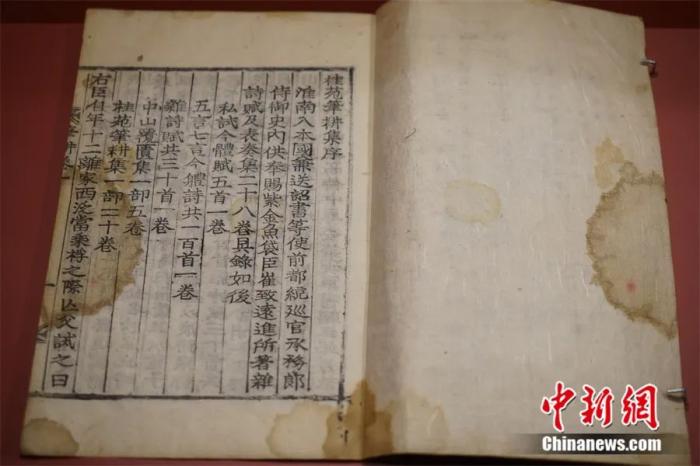 桂苑筆耕集序
淮南入本國兼送詔書等使前都統巡官承務郎
侍御史內供奉賜紫金魚袋臣崔致遠進所著雜
詩賦及表奏集二十八卷具錄如後
私試今體賦五首一卷
五言七言今體詩共一百首一卷
雜詩賦共三十首一卷
中山覆匱集一部五卷
桂苑筆耕集一部二十卷
右臣自年十二離家西泛當乘桴之際亡父誡之曰
中新网
Chinanews.com